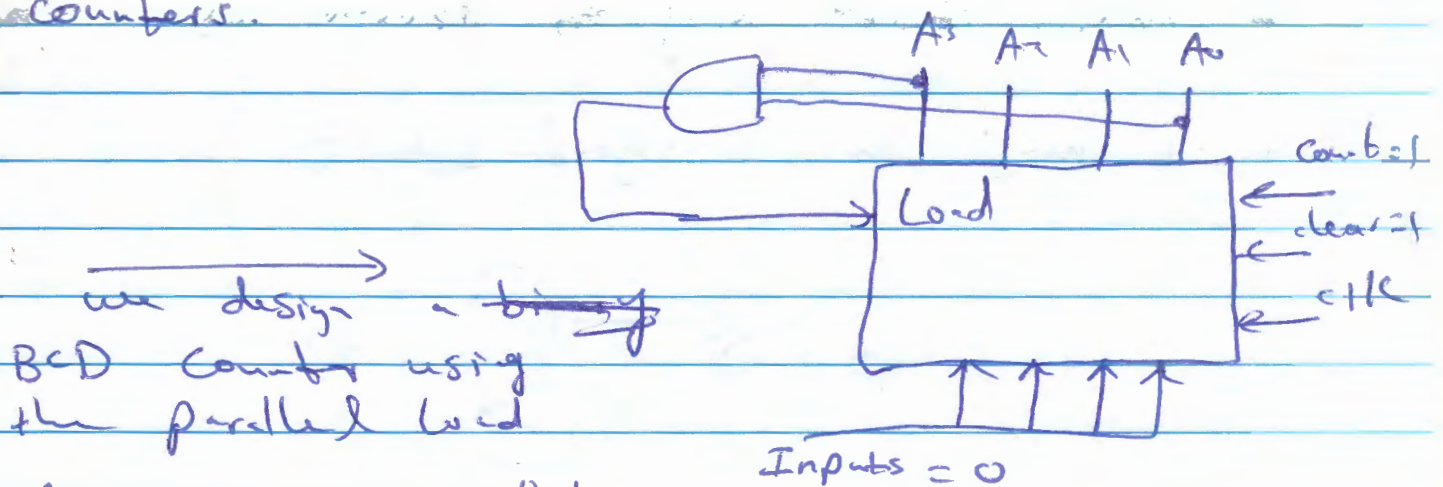 Counters.
A3 A2 A1 A0
Count=1
Load
clear=1
clk
we design a binary
BCD Counter using
the parallel load
Inputs = 0